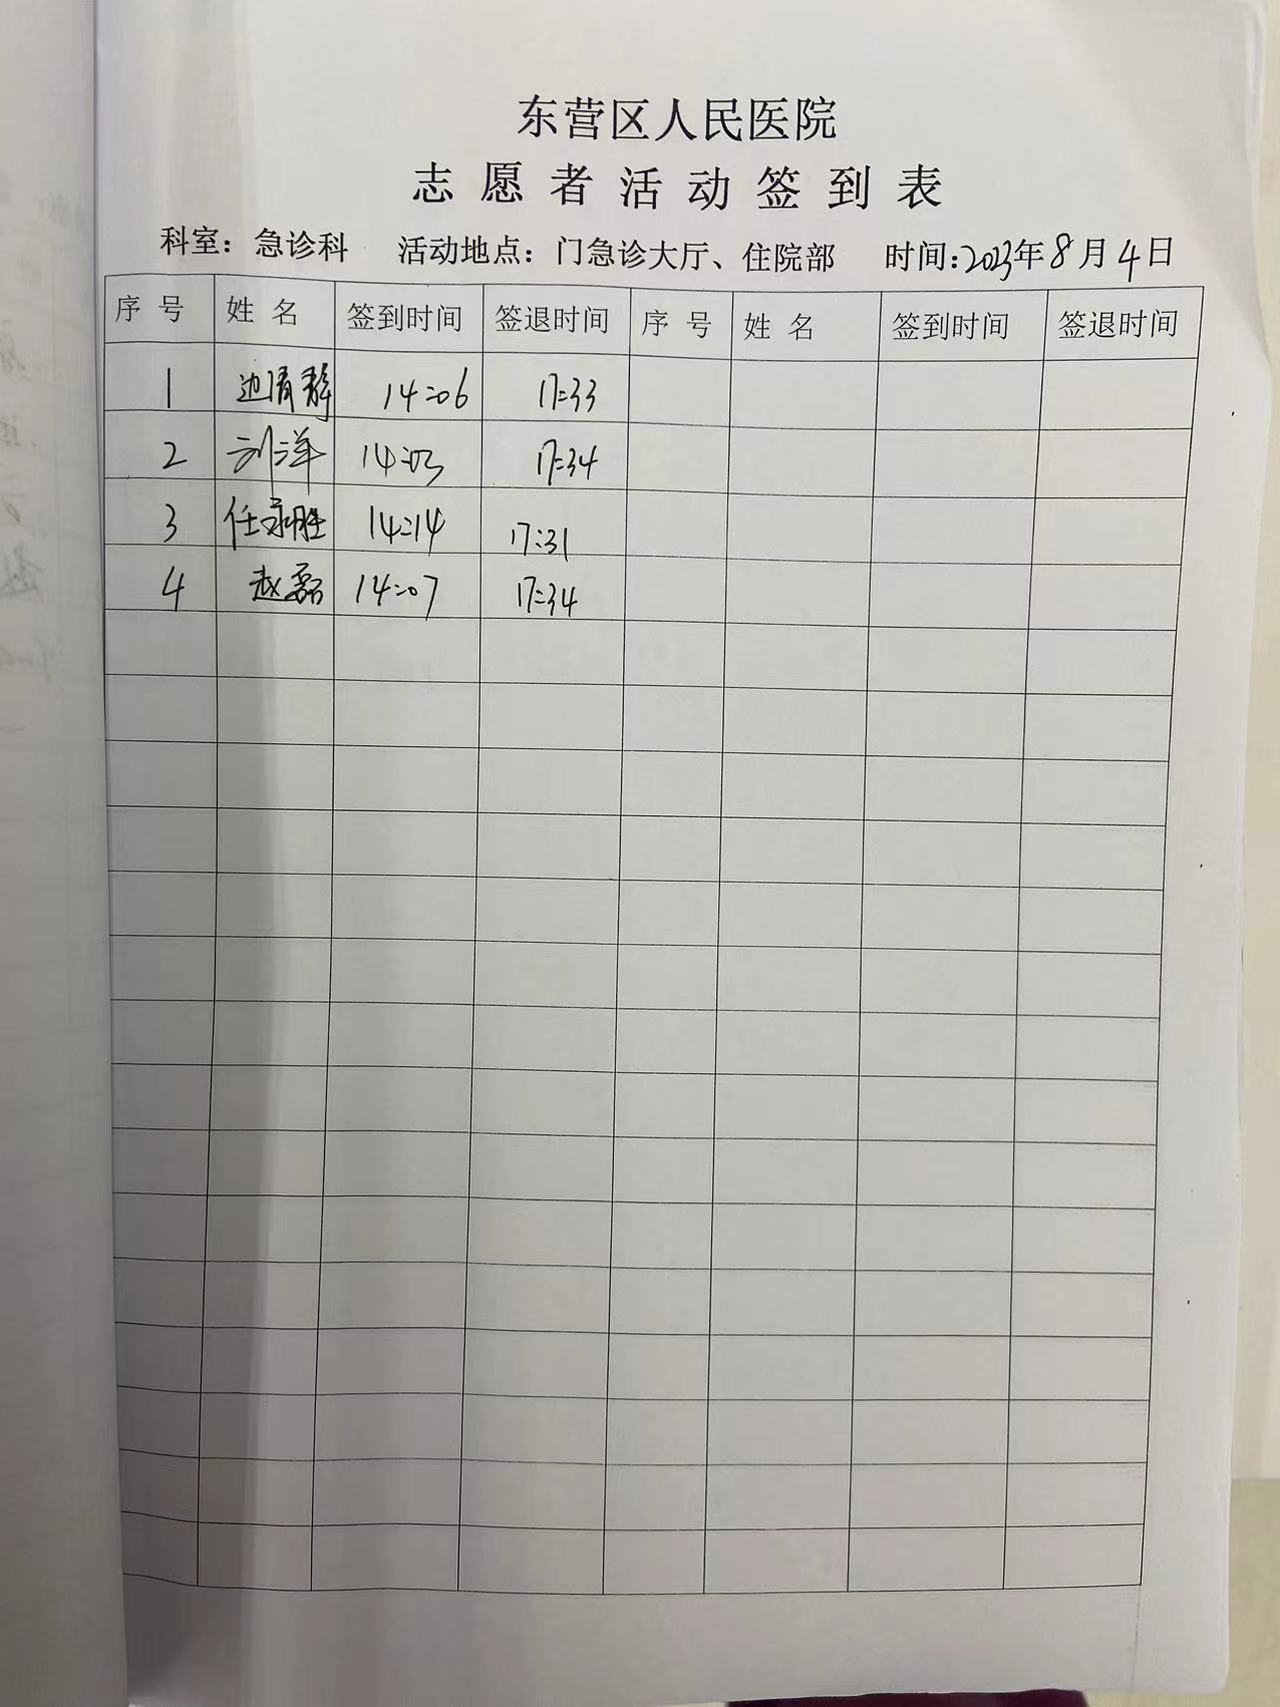 东营区人民医院
志愿者活动签到表
科室：急诊科 活动地点：门急诊大厅、住院部 时间：2023年8月4日
序号 姓名 签到时间 签退时间 序号 姓名 签到时间 签退时间
1 边清静 14:06 17:33
2 刘洋 14:03 17:34
3 任永胜 14:14 17:31
4 赵磊 14:07 17:34